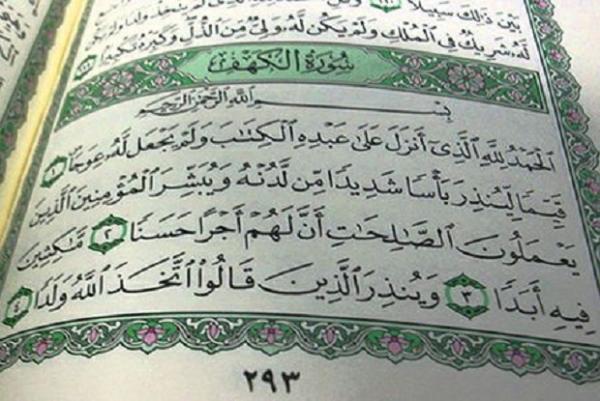 بَيْنَ ذَٰلِكَ سَبِيلًا
لَّهُۥ شَرِيكٌ فِى ٱلْمُلْكِ وَلَمْ يَكُن لَّهُۥ وَلِىٌّ مِّنَ ٱلذُّلِّ وَكَبِّرْهُ تَكْبِيرًا
سُورَةُ الكَهْفِ
بِسْمِ ٱللَّهِ ٱلرَّحْمَٰنِ ٱلرَّحِيمِ
ٱلْحَمْدُ لِلَّهِ ٱلَّذِىٓ أَنزَلَ عَلَىٰ عَبْدِهِ ٱلْكِتَٰبَ وَلَمْ يَجْعَل لَّهُۥ عِوَجَاۜ ١
قَيِّمًا لِّيُنذِرَ بَأْسًا شَدِيدًا مِّن لَّدُنْهُ وَيُبَشِّرَ ٱلْمُؤْمِنِينَ ٱلَّذِينَ
يَعْمَلُونَ ٱلصَّٰلِحَٰتِ أَنَّ لَهُمْ أَجْرًا حَسَنًا ٢ مَّٰكِثِينَ
فِيهِ أَبَدًا ٣ وَيُنذِرَ ٱلَّذِينَ قَالُوا۟ ٱتَّخَذَ ٱللَّهُ وَلَدًا ٤
٢٩٣